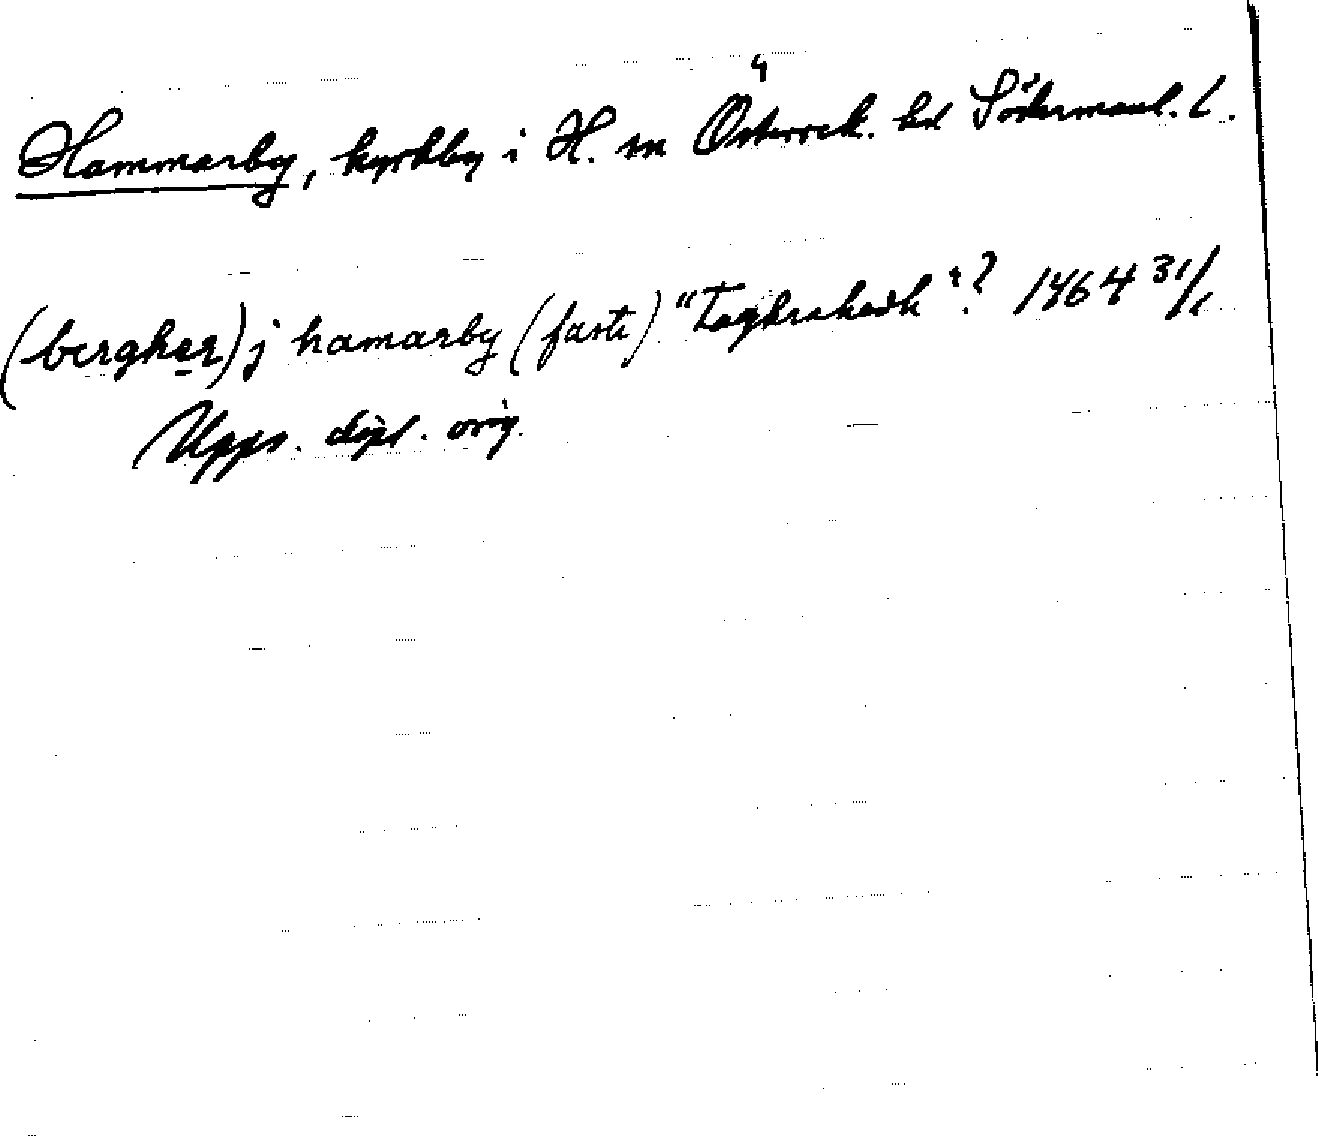 Hammarby, kyrkby i H. sn Österrek. hd Södermanl. l.
(bergher) j hamarby (faste) "Taghrahordh"? 1464 31/1
Upps. dipl. orig.